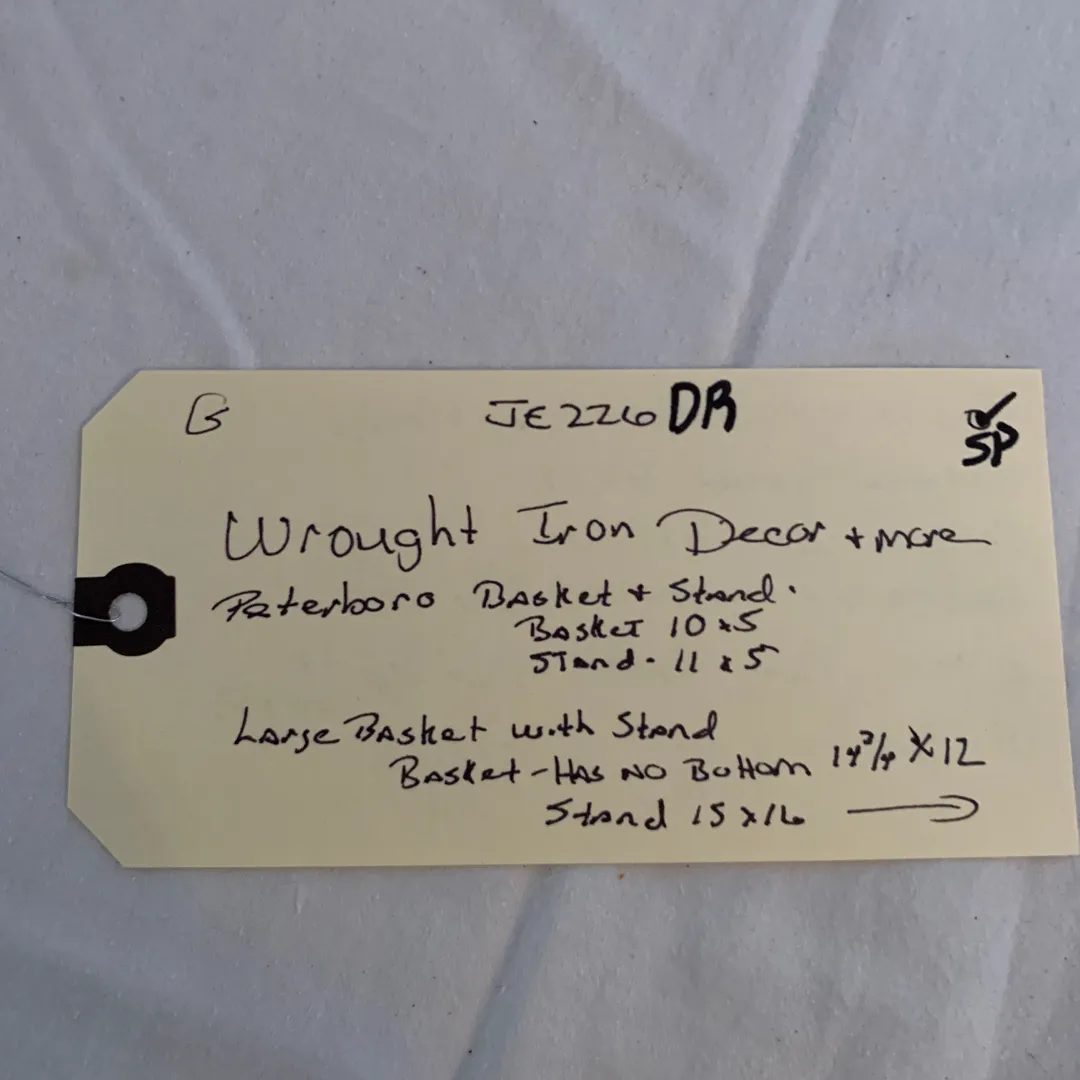 B JE226 DR SP
Wrought Iron Decor + more
Peterboro Basket + Stand.
Basket 10 x 5
Stand - 11 x 5
Large Basket with Stand
Basket - Has no Bottom 14 3/4 X 12
Stand 15 x 16 →